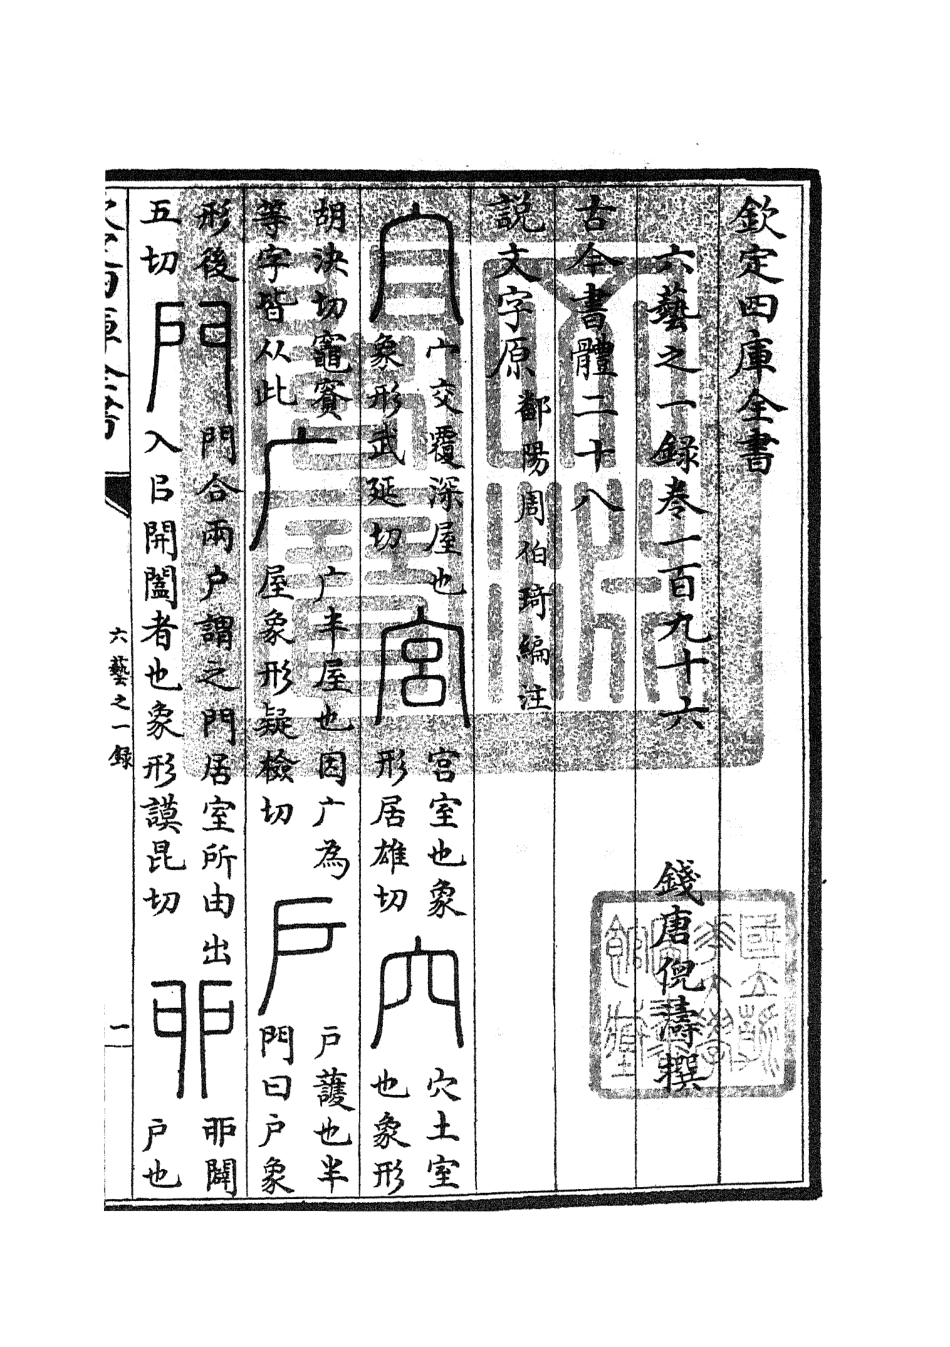 欽定四庫全書
六藝之一録卷一百九十六
錢唐倪濤撰
古今書體二十八
說文字原 鄱陽周伯琦編注
宀 宀交覆深屋也
象形武延切
宮 宮室也象
形居雄切
穴 穴土室
也象形
胡決切竈竇
等字皆从此
广 广半屋也因广為
屋象形疑檢切
户 户護也半
門曰户象
形後
五切
門 門合兩户謂之門居室所由出
入㠯開闔者也象形謨昆切
戼 戼闢
户也
六藝之一録
一